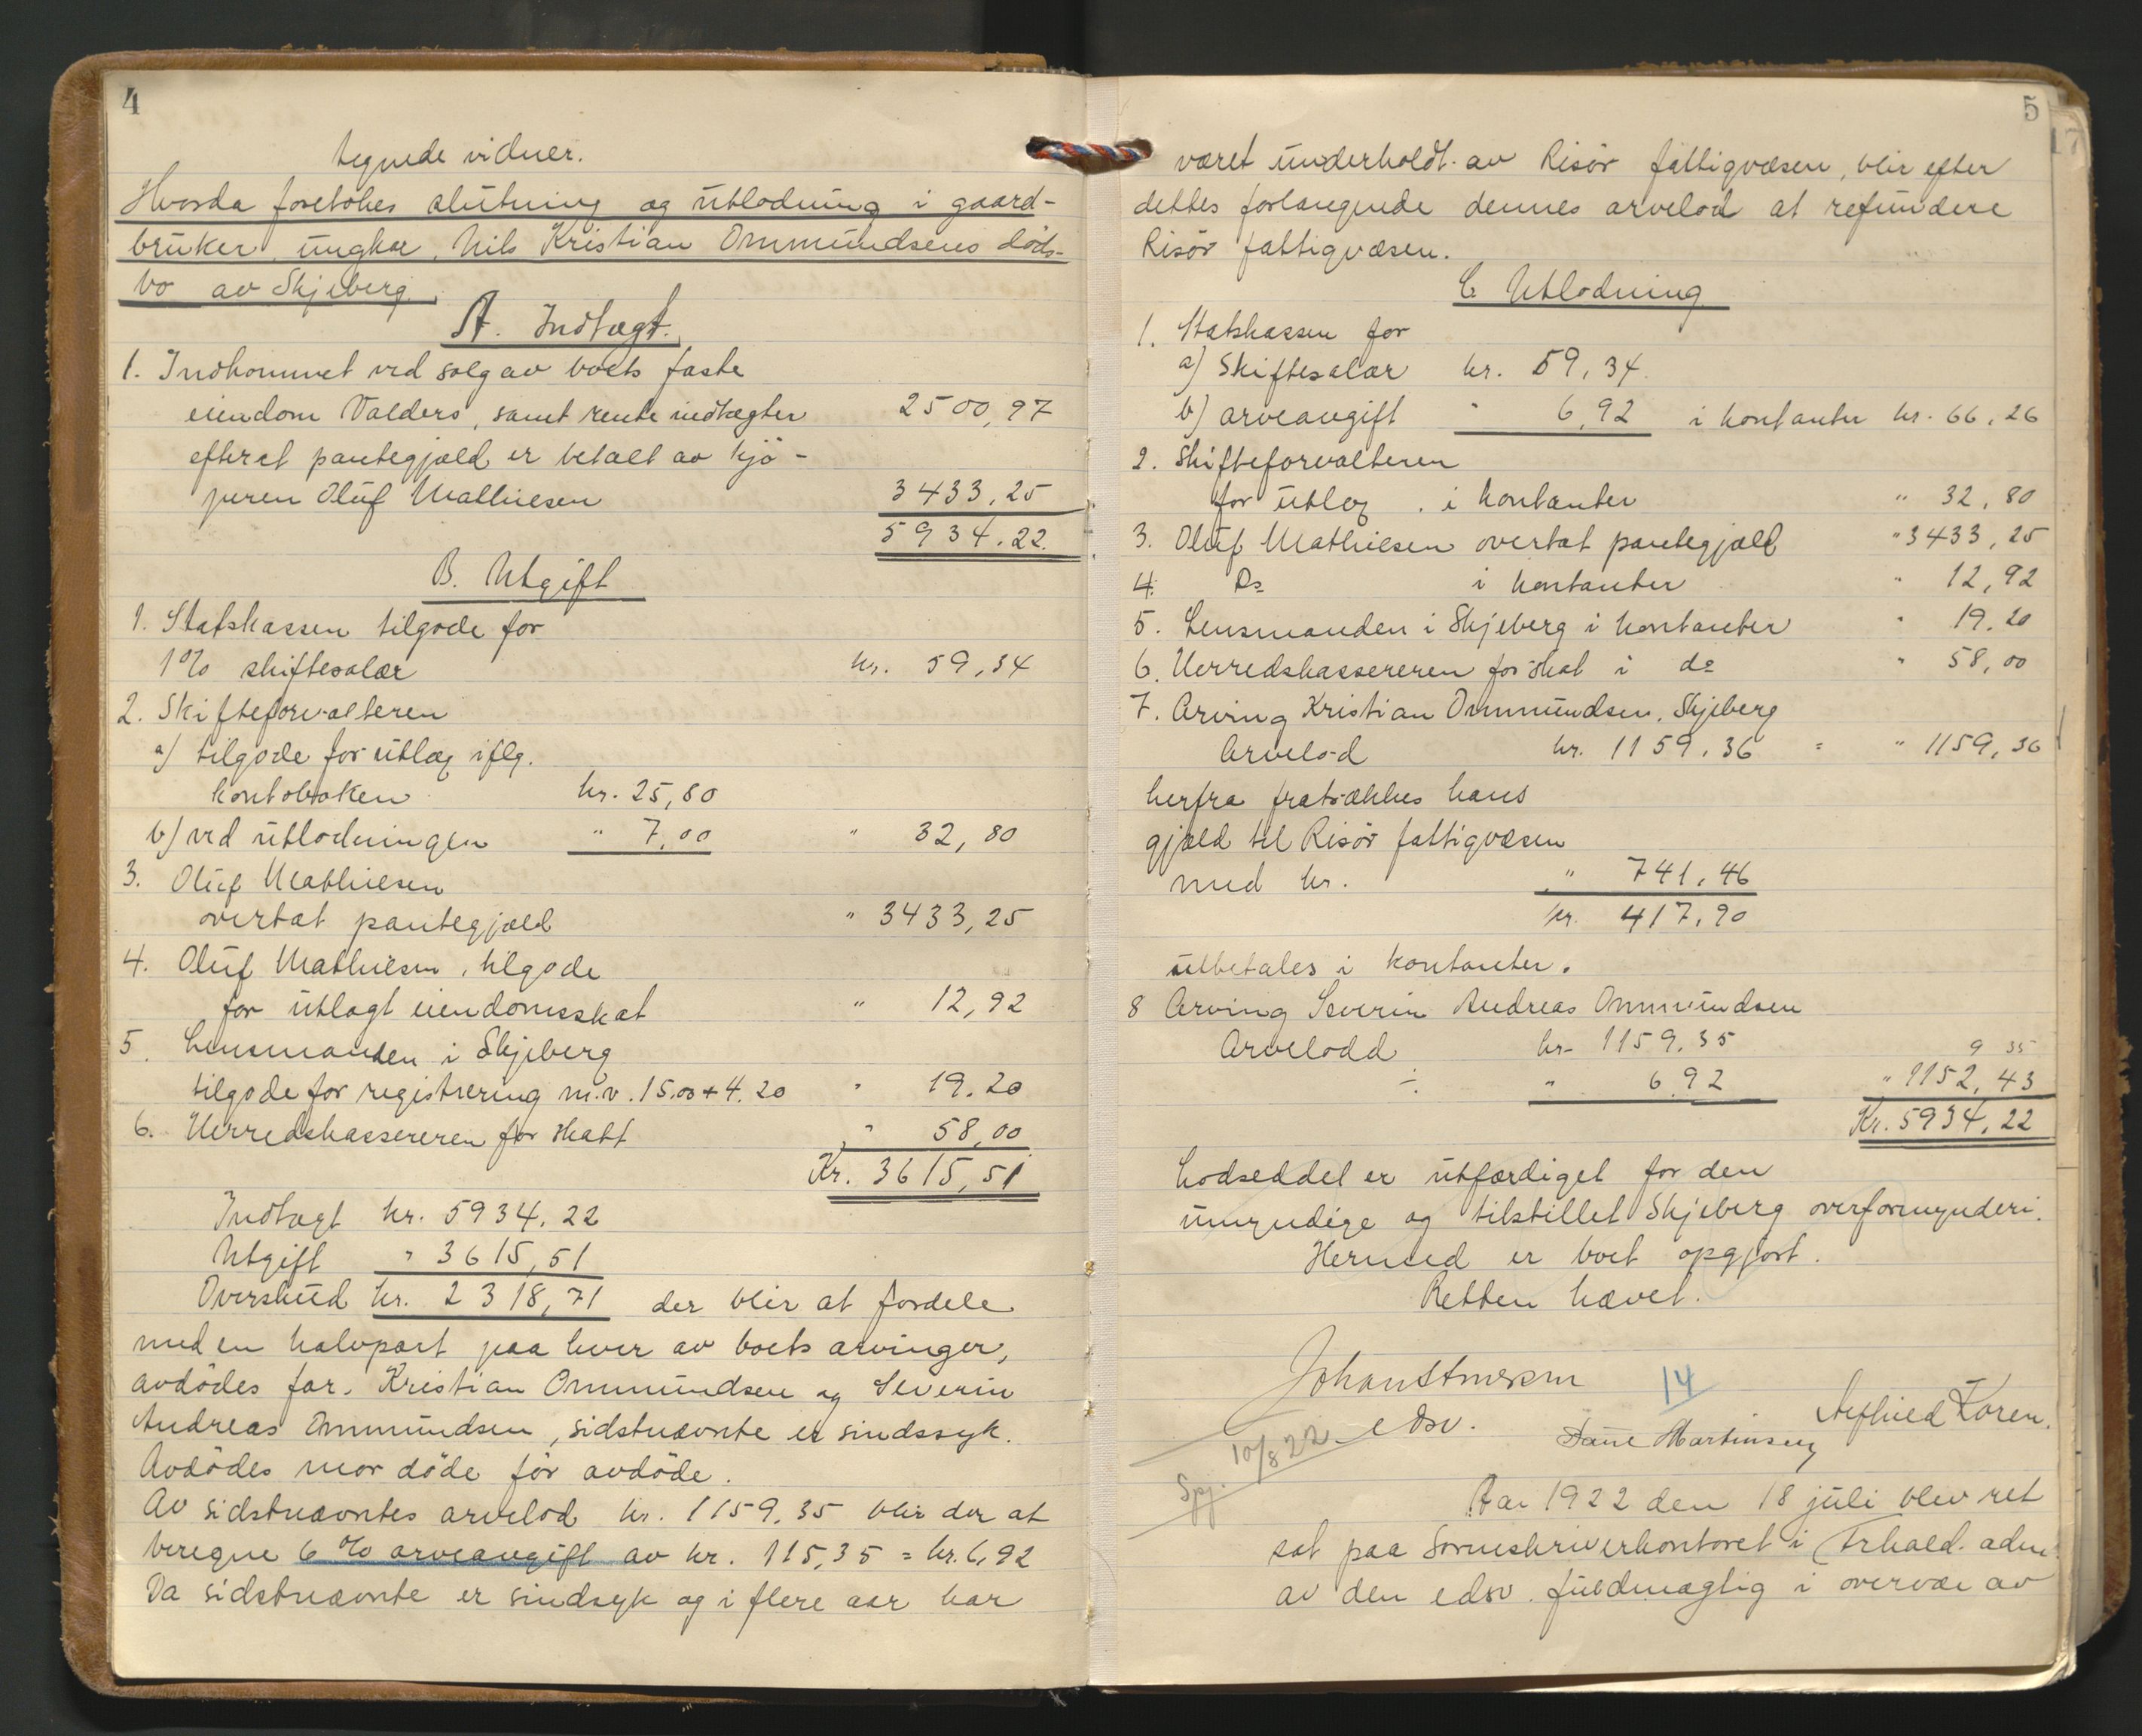 4
tegnede vidner.
Hvorda foretokes slutning og utlodning i gaard-
bruker, ungkar, Nils Kristian Ommundsens döds-
bo av Skjeberg.
A. Indtægt.
1. Indkommet ved salg av boets faste
eiendom Valders, samt rente indtægter 2500,97
efterat pantegjæld er betalt av kjö-
peren Oluf Mathiesen 3433,25
5934.22.
B. Utgift
1. Statskassen tilgode for
1% skiftesalær kr. 59,34
2. Skifteforvalteren
a) tilgode for utlæg iflg.
kontoboken kr. 25,80
b) ved utlodningen " 7,00 " 32,80
3. Oluf Mathiesen
overtat pantegjæld " 3433,25
4. Oluf Mathiesen, tilgode
for utlagt eiendomsskat " 12,92
5. Lensmanden i Skjeberg
tilgode for registrering m.v. 15.00 + 4.20 " 19.20
6. Herredskassereren for skatt " 58,00
Kr. 3615,51
Indtægt kr. 5934.22
Utgift " 3615,51
Overskud kr. 2318,71 der blir at fordele
med en halvpart paa hver av boets arvinger,
avdödes far, Kristian Ommundsen og Severin
Andreas Ommundsen, sidstnævnte er sindssyk.
Avdödes mor döde för avdöde.
Av sidstnævntes arvelod kr. 1159.35 blir der at
beregne 6% arveavgift av kr. 115,35 = kr. 6,92
Da sidstnævnte er sindsyk og i flere aar har
5
17
været underholdt av Risör fattigvæsen, blir efter
dettes forlangende dennes arvelod at refundere
Risör fattigvæsen.
C. Utlodning
1. Statskassen for
a) Skiftesalær kr. 59,34
b) arveavgift " 6,92 i kontanter kr. 66,26
2. Skifteforvalteren
for utlæg i kontanter " 32,80
3. Oluf Mathiesen overtat pantegjæld " 3433,25
4. Do i kontanter " 12,92
5. Lensmanden i Skjeberg i kontanter " 19.20
6. Herredskassereren for skat i do " 58,00
7. Arving Kristian Ommundsen, Skjeberg
Arvelod kr. 1159.36 = " 1159,36
herfra fratrækkes hans
gjæld til Risör fattigvæsen
med kr. " 741,46
kr. 417.90
utbetales i kontanter.
8 Arving Severin Andreas Ommundsen
Arvelodd kr. 1159.35
9 35
÷ " 6,92 " 1152,43
Kr. 5934,22
Lodseddel er utfærdiget for den
umyndige og tilstillet Skjeberg overformynderi.
Hermed er boet opgjort.
Retten hævet.
14
edsv. Koren.
Martinsen
10/8 22
Spj.
Aar 1922 den 18 juli blev ret
sat paa Sorenskriverkontoret i Frhald. adm.
av den edsv. fuldmægtig i overvær av